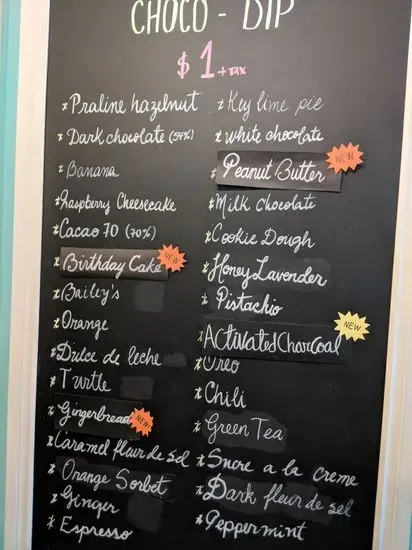 CHOCO - DIP
$1 + TAX
* Praline hazelnut
* Dark chocolate (54%)
* Banana
* Raspberry Cheesecake
* Cacao 70 (70%)
* Birthday Cake NEW
* Bailey's
* Orange
* Dulce de leche
* Turtle
* Gingerbread NEW
* Caramel fleur de sel
* Orange Sorbet
* Ginger
* Espresso
* Key lime pie
* White chocolate
* Peanut Butter NEW
* Milk chocolate
* Cookie Dough
* Honey Lavender
* Pistachio
* Activated Charcoal NEW
* Oreo
* Chili
* Green Tea
* Sucre a la creme
* Dark fleur de sel
* Peppermint